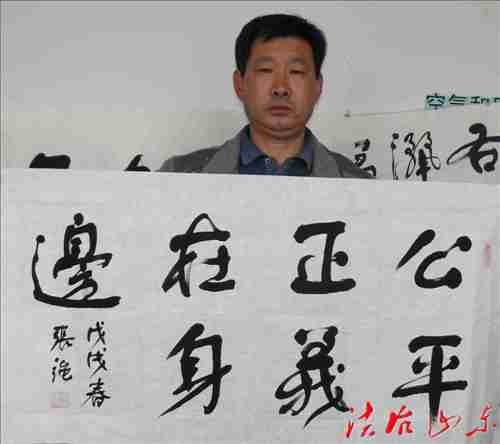 公平
正義
在身
邊
戊戌春
張
空气
右
法治山东